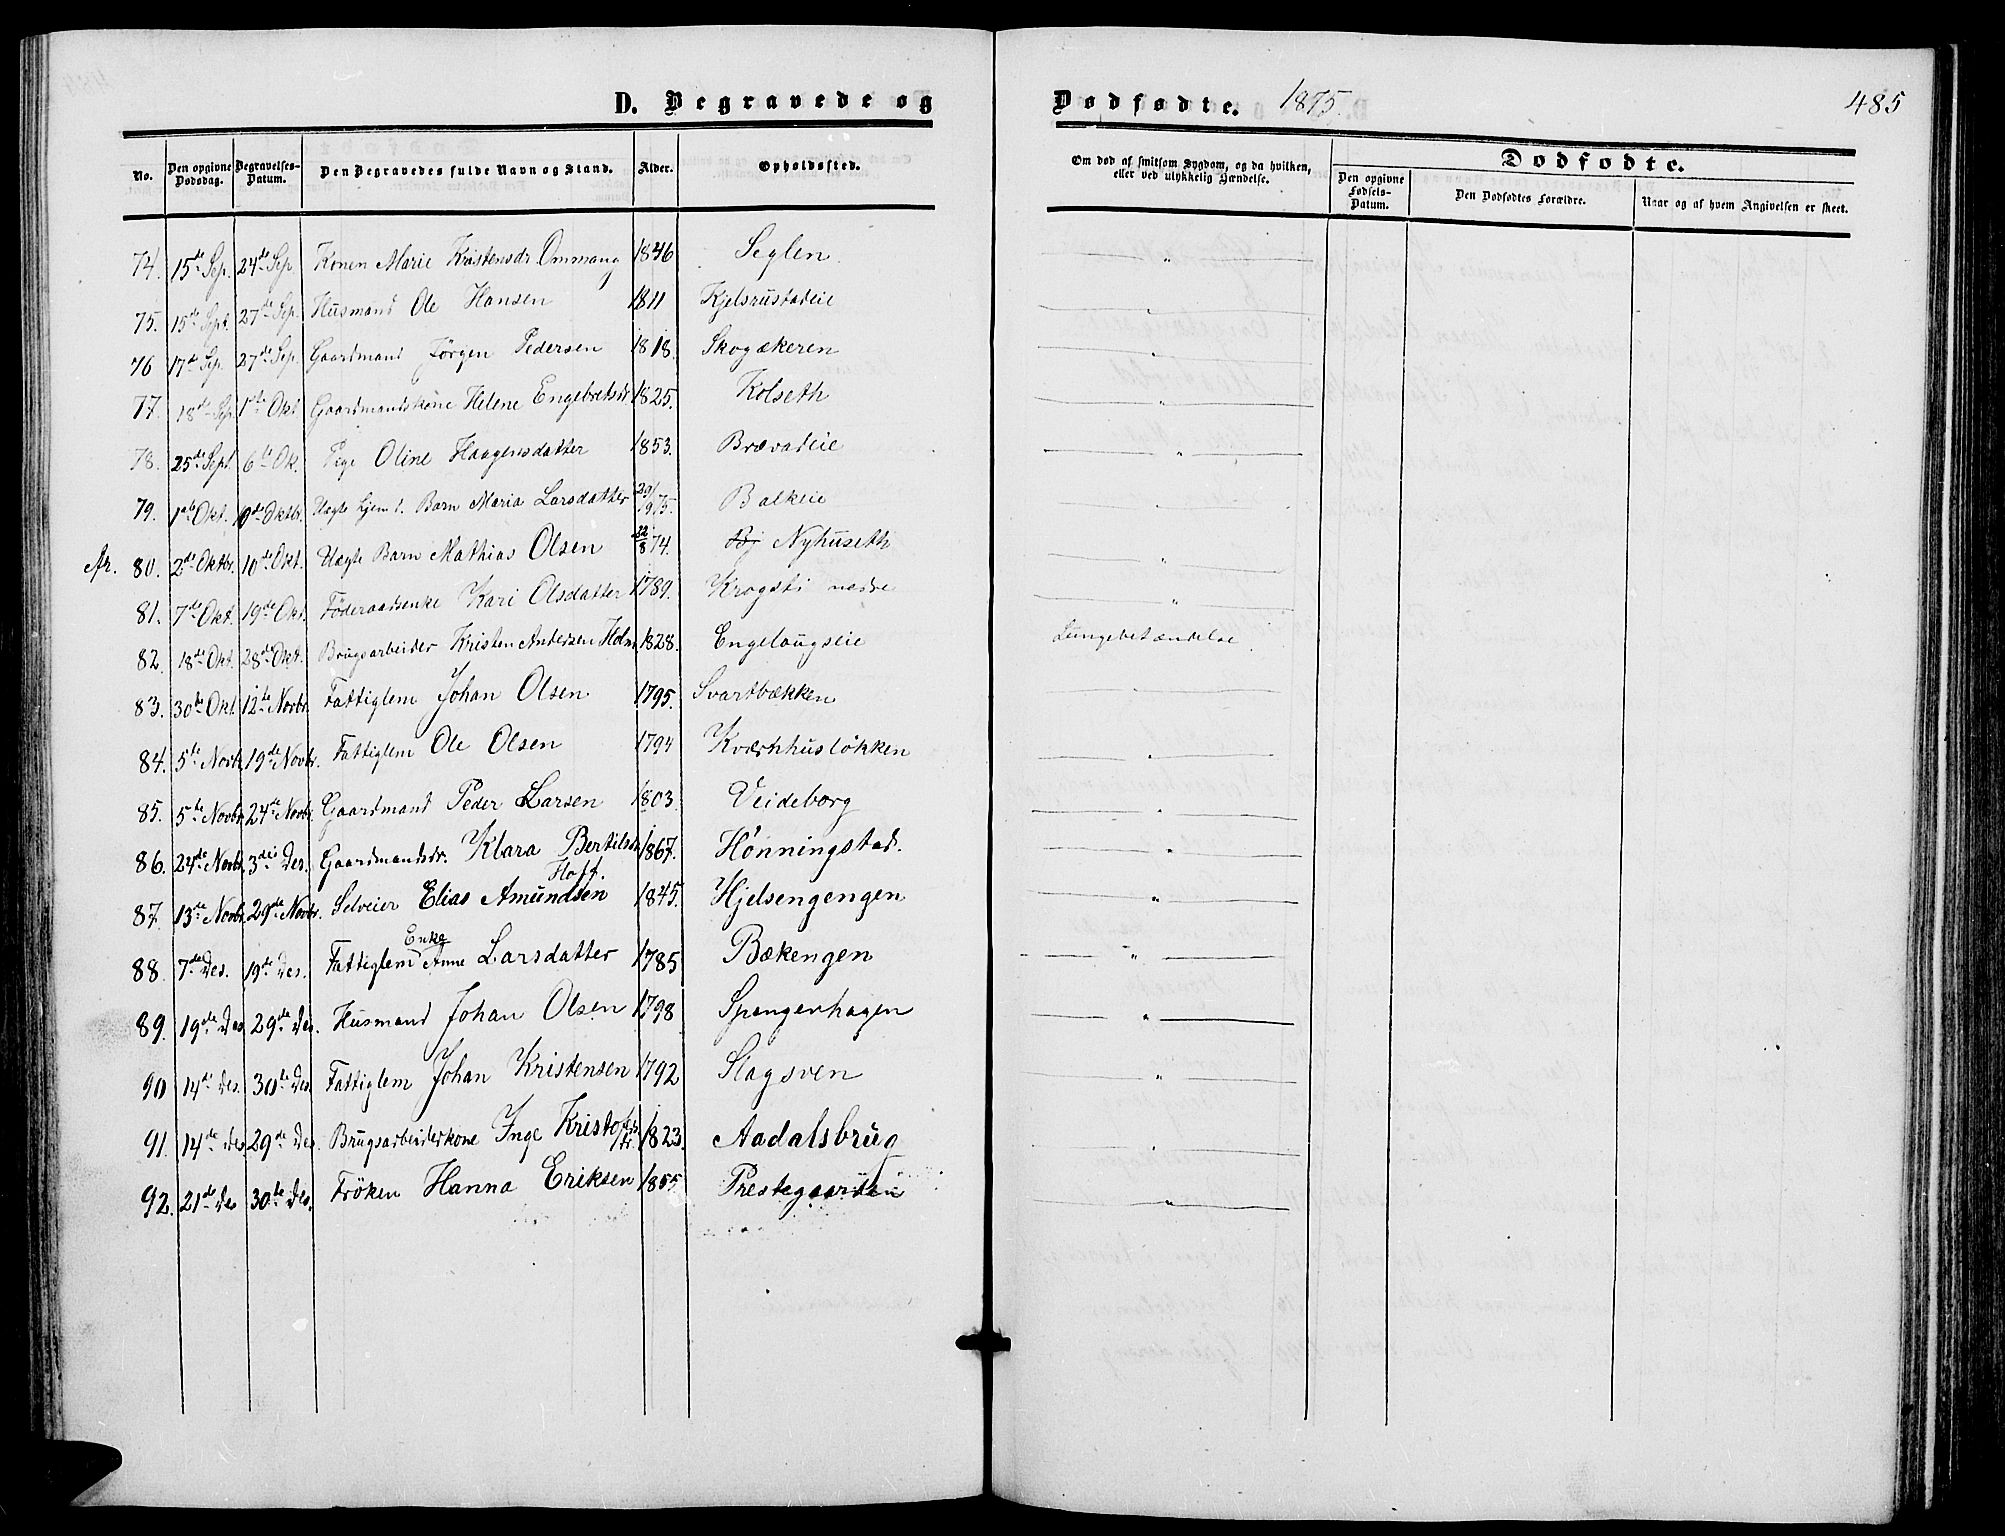 D. Begravede og Dødfødte. 1875. 485
No. Den opgivne Dødsdag. Begravelses-Datum. Den Begravedes fulde Navn og Stand. Alder. Opholdssted. Om død af smitsom Sygdom, og da hvilken, eller ved ulykkelig Hændelse. Dødfødte. Den opgivne Fødsels-Datum. Den Dødfødtes Forældre. Naar og af hvem Angivelsen er skeet.
74. 15de Sep. 24de Sep. Konen Marie Kristensdr Ommang 1846 Seglen — " —
75. 15de Sept. 27de Sep. Husmand Ole Hansen 1811 Kjelsrustadeie — " —
76 17de Sep. 27de Sep. Gaardmand Jörgen Pedersen 1818. Skogækeren — " —
77. 18de Sep 1ste Okt Gaardmandskone Helene Engebretsdr 1825. Kolseth — " —
78. 25de Sept. 6te Ok. Pige Oline Haagensdatter 1853. Brævadeie — " —
79. 1ste Okt. 10de Oktbr. Uægte hjem d. Barn Maria Larsdatter 20/9 75. Balkeie — " —
80. 2den Oktbr. 10de Okt. Uægte Barn Mathias Olsen 22/8 74. Nyhuseth — " —
81. 7de Okt. 19de Okt. Föderaadsenke Kari Olsdatter 1789. Krogsti nedre — " —
82. 18de Okt. 28de Okt. Brugsarbeider Kristen Andersen Holm 1828. Engelaugseie Lungebetændelse
83. 30te Okt. 12te Novbr. Fattiglem Johan Olsen 1795. Svartbækken — " —
84. 5te Novbr. 19de Novbr. Fattiglem Ole Olsen 1794 Kværnhuslökken — " —
85. 5te Novbr. 24de Novbr. Gaardmand Peder Larsen 1803. Veideborg — " —
86. 24de Novbr. 3die Des. Gaardmandsdr. Klara Bertilsdr Hoff. 1867. Hönningstad. — " —
87. 13de Novbr. 29de Novbr. Selveier Elias Amundsen 1845. Hjelsengengen — " —
88. 7de Des. 19de Des. Fattiglem Enke Anne Larsdatter 1785 Bækengen — " —
89. 19de Des 29de Des. Husmand Johan Olsen 1798 Spangerhagen — " —
90 14de Des. 30te Des. Fattiglem Johan Kristensen 1792 Slagsven — " —
91. 14de Des 29de Des. Brugsarbeiderkone Inge Kristofersdr. 1823. Aadalsbrug — " —
92. 21de Des 30te Des. Fröken Hanna Eriksen 1855. Prestegaarden — " —